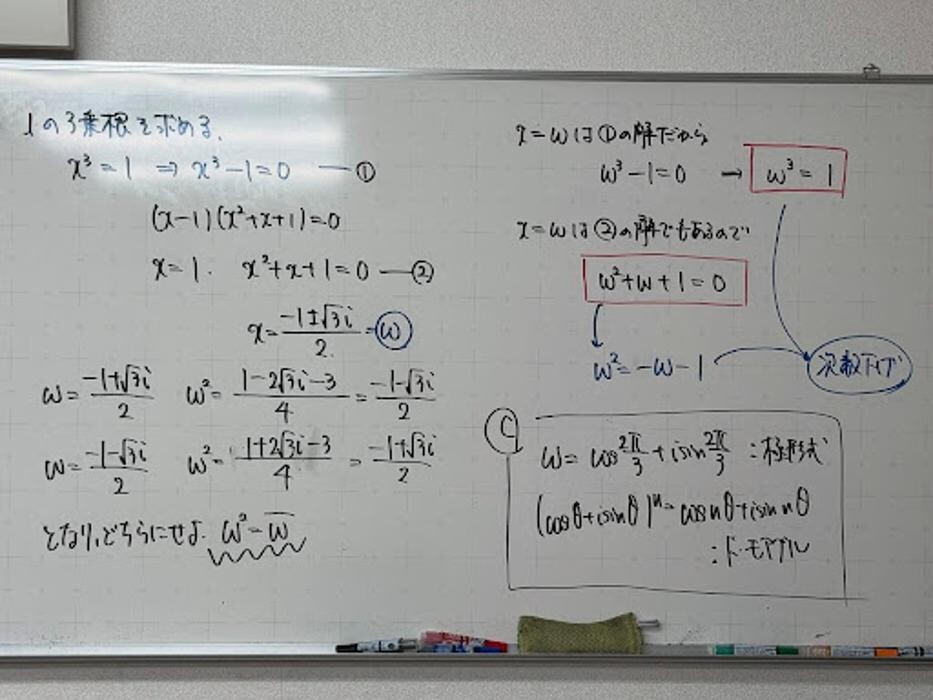 1の3乗根を求める.
x³ = 1 ⇒ x³ - 1 = 0 ― ①
(x-1)(x²+x+1)=0
x = 1. x²+x+1=0 ― ②
x = (-1±√3i)/2. = ω
ω = (-1+√3i)/2 ω² = (1-2√3i-3)/4 = (-1-√3i)/2
ω = (-1-√3i)/2 ω² = (1+2√3i-3)/4 = (-1+√3i)/2
となり,どちらにせよ. ω² = ω̄
x=ωは①の解だから
ω³-1=0 → ω³ = 1
x=ωは②の解でもあるので
ω²+ω+1=0
ω² = -ω-1 次数下げ
C
ω = cos 2π/3 + i sin 2π/3 :極形式
(cosθ+isinθ)ⁿ = cos nθ+isin nθ
:ド・モアブル